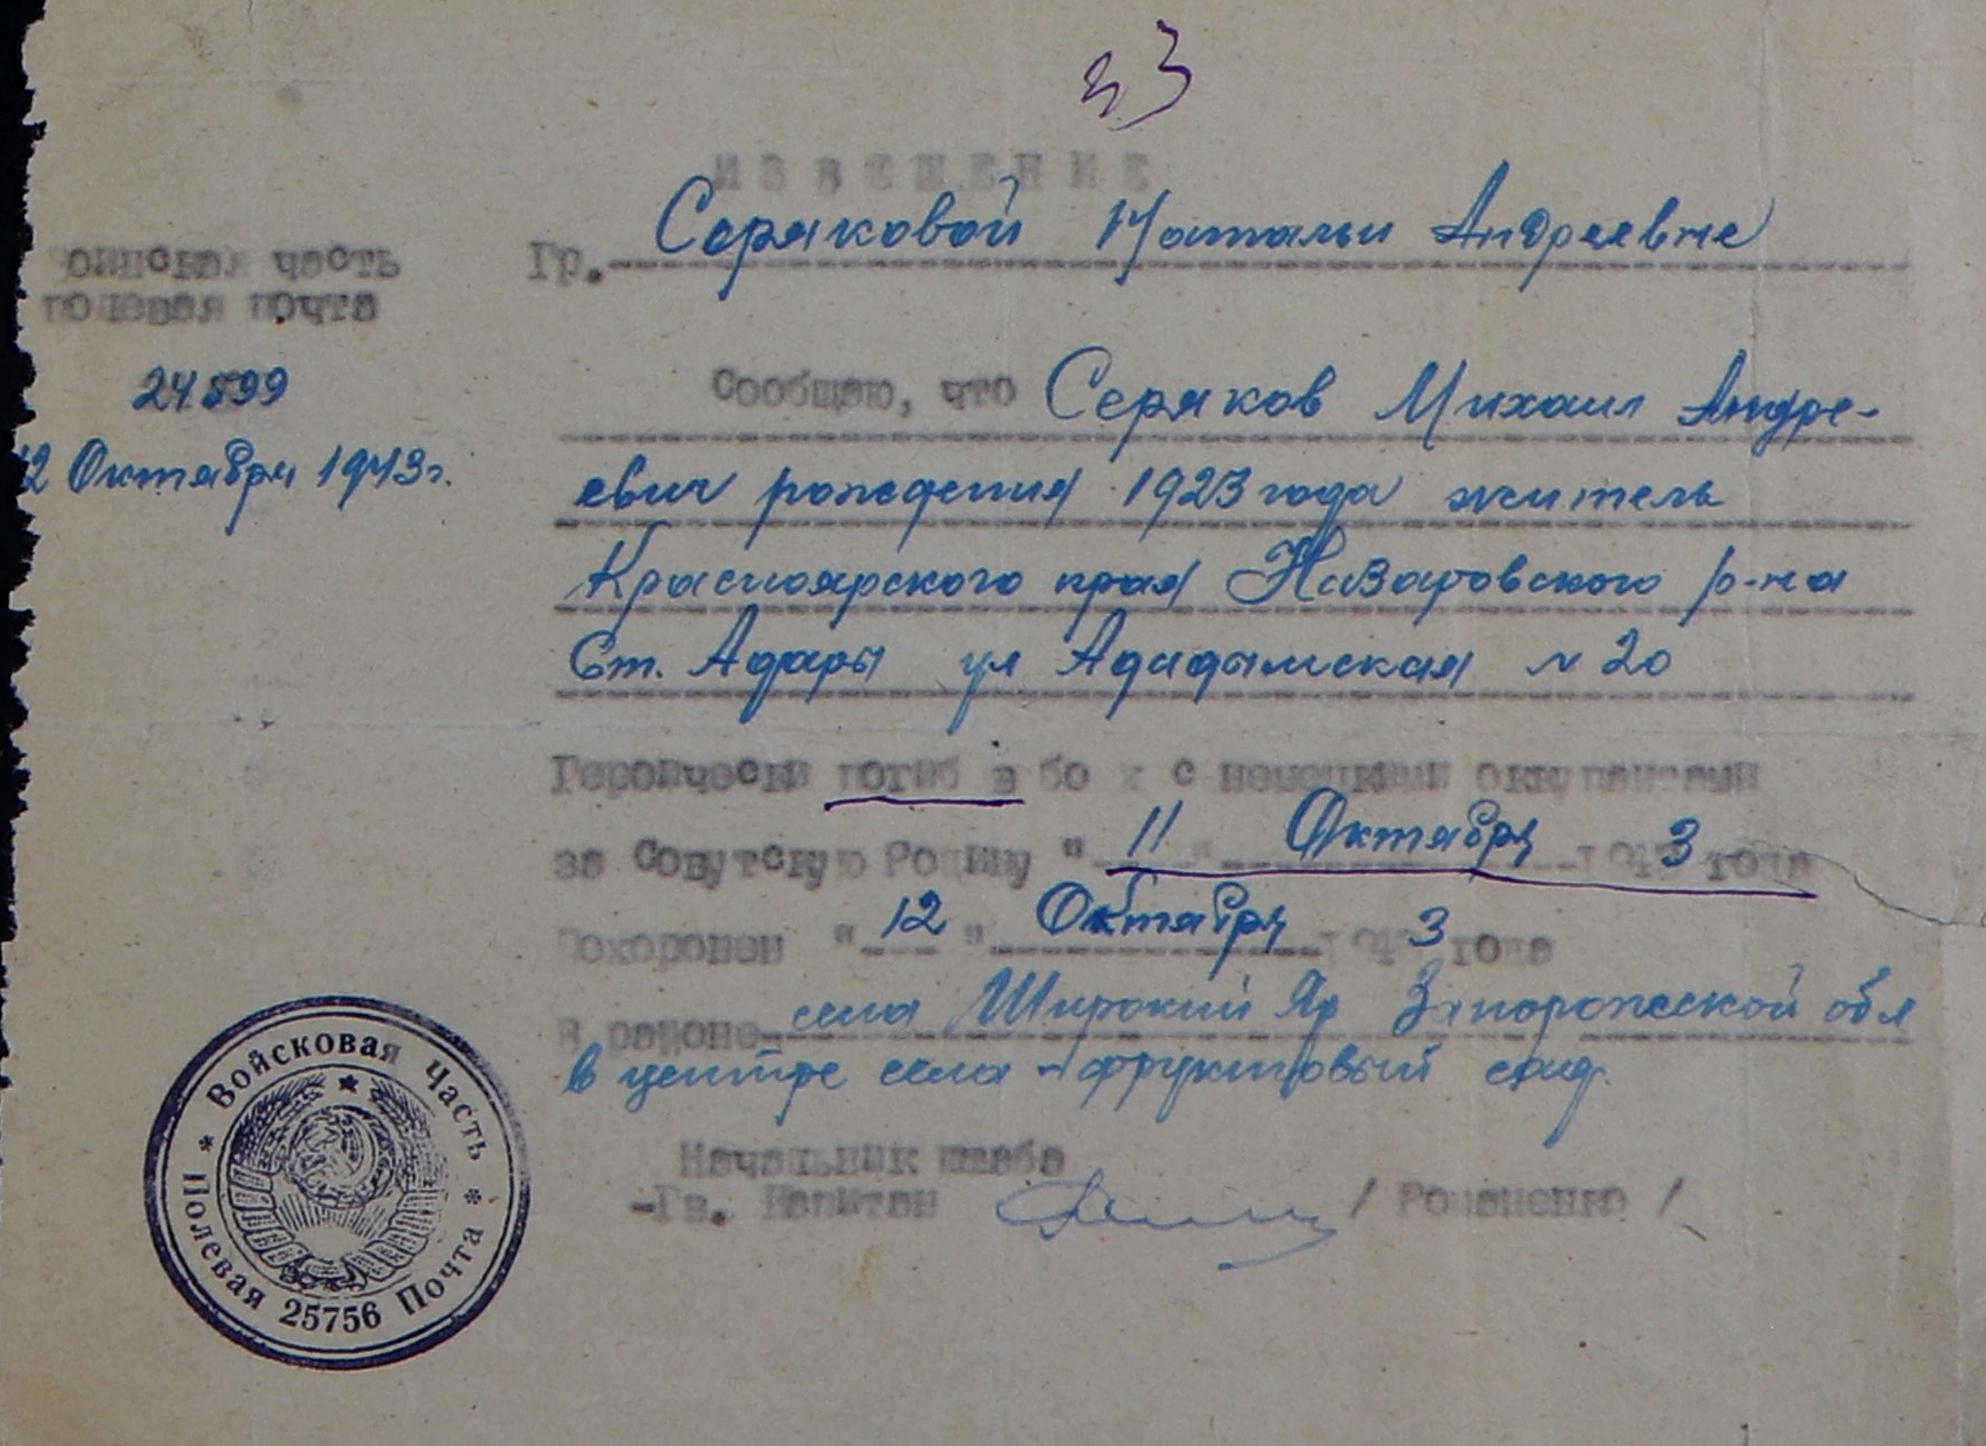 33
ИЗВЕЩЕНИЕ
Гр. Серяковой Натальи Андреевне
воинская часть
полевая почта
24599
12 Октября 1943г.
Сообщаю, что Серяков Михаил Андре-
евич рождения 1923 года житель
Красноярского края Назаровского р-на
Ст. Адары ул Ададымская N 20
Героически погиб в боях с немецкими оккупантами
за Советскую Родину "11" Октября 1943 года
Похоронен "12" Октября 1943 года
В районе села Широкий Яр Запорожской обл
в центре села - фруктовый сад.
Начальник штаба
-Гв. Капитан / Романенко /
* Войсковая Часть *
Полевая 25756 Почта